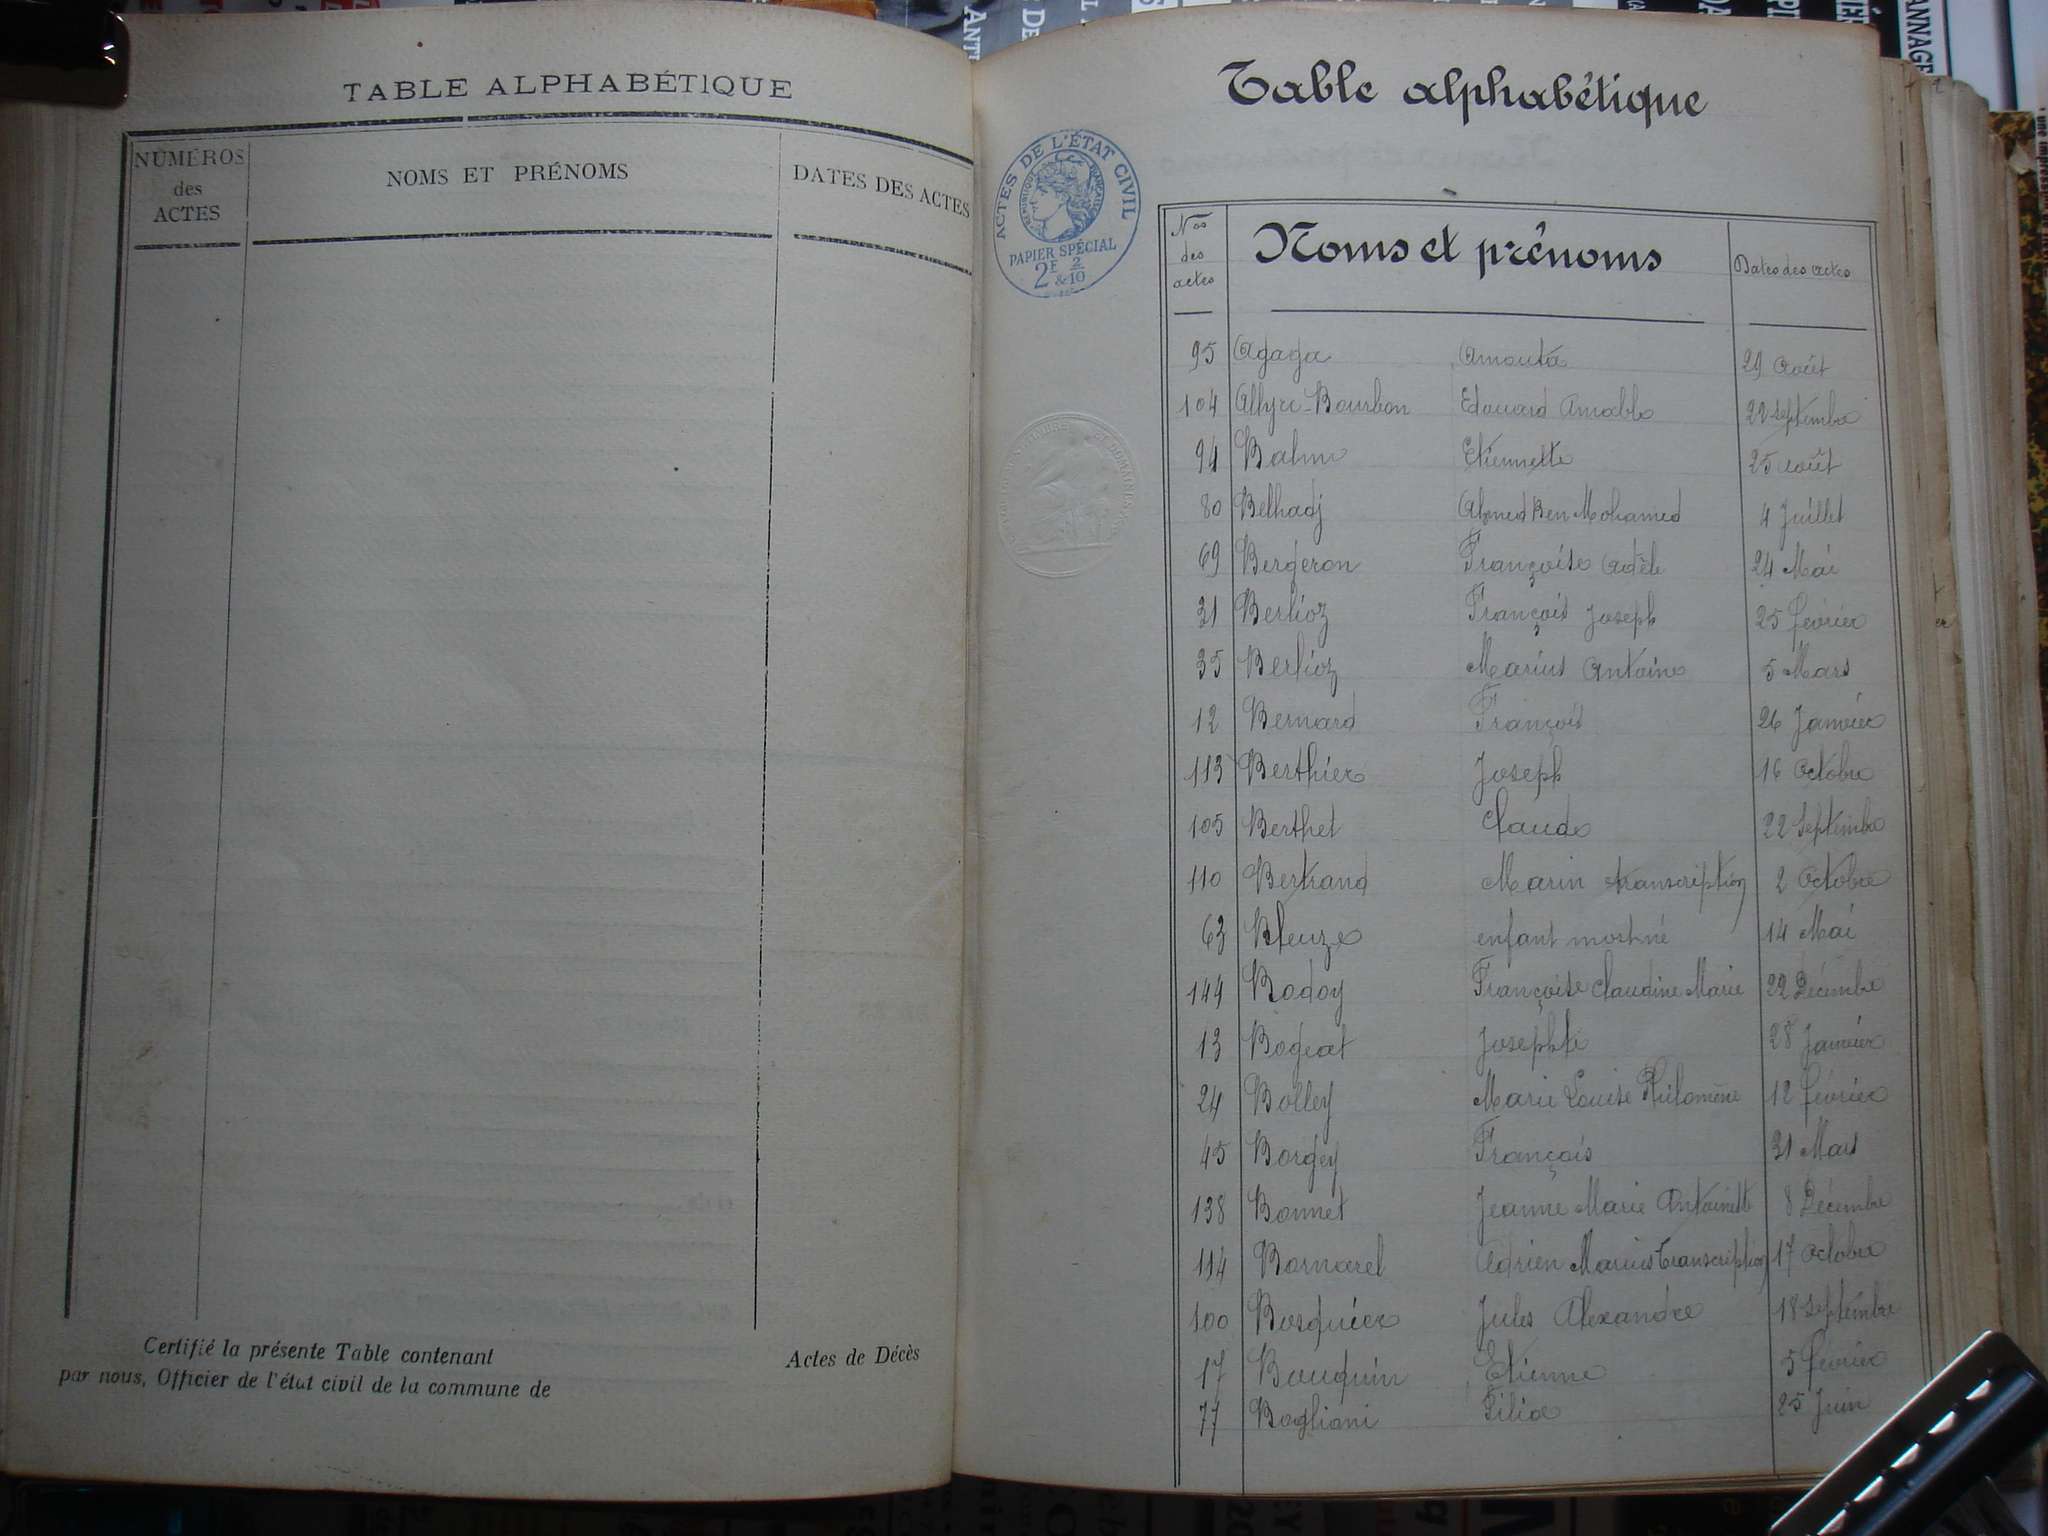 TABLE ALPHABÉTIQUE
NUMÉROS
des
ACTES
NOMS ET PRÉNOMS
DATES DES ACTES
Certifié la présente Table contenant
Actes de Décès
par nous, Officier de l'état civil de la commune de
Table alphabétique
ACTES DE L'ÉTAT CIVIL
RÉPUBLIQUE FRANÇAISE
PAPIER SPÉCIAL
2F & 2/10
Nos
des
actes
Noms et prénoms
Dates des actes
95 Agaga Amouta 29 Août
104 Allyre-Bourbon Edouard Amable 22 septembre
94 Balme Etiennette 25 août
80 Belhadj Ahmed Ben Mohamed 4 Juillet
69 Bergeron Françoise Adèle 24 Mai
31 Berlioz François Joseph 25 février
35 Berlioz Marius Antoine 5 Mars
12 Bernard François 26 Janvier
113 Berthier Joseph 16 Octobre
105 Berthet Claude 22 Septembre
110 Bertrand Marin transcription 2 Octobre
63 Bleuze enfant mort né 14 Mai
144 Bodoy Françoise Claudine Marie 22 Décembre
13 Bogeat Josephte 28 Janvier
24 Bolley Marie Louise Philomène 12 février
45 Borgey François 31 Mars
138 Bonnet Jeanne Marie Antoinette 8 Décembre
114 Bornarel Adrien Marius transcription 17 Octobre
100 Bosquier Jules Alexandre 18 Septembre
17 Bouquin Etienne 5 février
77 Bogliani 25 Juin